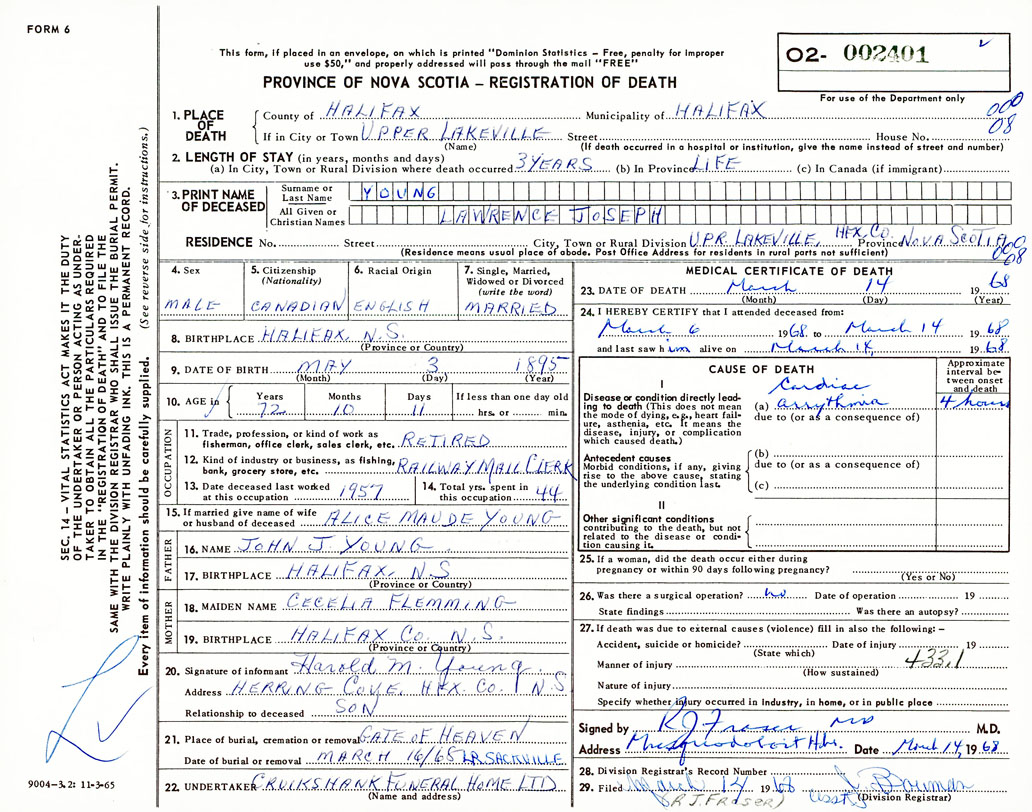 FORM 6
This form, if placed in an envelope, on which is printed "Dominion Statistics – Free, penalty for improper
use $50," and properly addressed will pass through the mail "FREE"
PROVINCE OF NOVA SCOTIA – REGISTRATION OF DEATH
02- 002401
For use of the Department only
000
08
SEC. 14 – VITAL STATISTICS ACT MAKES IT THE DUTY
OF THE UNDERTAKER OR PERSON ACTING AS UNDER-
TAKER TO OBTAIN ALL THE PARTICULARS REQUIRED
IN THE "REGISTRATION OF DEATH" AND TO FILE THE
SAME WITH THE DIVISION REGISTRAR WHO SHALL ISSUE THE BURIAL PERMIT.
WRITE PLAINLY WITH UNFADING INK. THIS IS A PERMANENT RECORD.
Every item of information should be carefully supplied. (See reverse side for instructions.)
1. PLACE OF DEATH County of HALIFAX Municipality of HALIFAX
If in City or Town UPPER LAKEVILLE Street House No.
(Name) (If death occurred in a hospital or institution, give the name instead of street and number)
2. LENGTH OF STAY (in years, months and days)
(a) In City, Town or Rural Division where death occurred 3 YEARS (b) In Province LIFE (c) In Canada (if immigrant)
3. PRINT NAME OF DECEASED Surname or Last Name YOUNG
All Given or Christian Names LAWRENCE JOSEPH
RESIDENCE No. Street City, Town or Rural Division UPR. LAKEVILLE, HFX. CO. Province NOVA SCOTIA
(Residence means usual place of abode. Post Office Address for residents in rural parts not sufficient)
000
08
4. Sex MALE
5. Citizenship (Nationality) CANADIAN
6. Racial Origin ENGLISH
7. Single, Married, Widowed or Divorced (write the word) MARRIED
8. BIRTHPLACE HALIFAX, N.S.
(Province or Country)
9. DATE OF BIRTH MAY 3 1895
(Month) (Day) (Year)
10. AGE in Years 72 Months 10 Days 11 If less than one day old hrs. or min.
OCCUPATION
11. Trade, profession, or kind of work as fisherman, office clerk, sales clerk, etc. RETIRED
12. Kind of industry or business, as fishing, bank, grocery store, etc. RAILWAY MAIL CLERK
13. Date deceased last worked at this occupation 1957
14. Total yrs. spent in this occupation 44
15. If married give name of wife or husband of deceased ALICE MAUDE YOUNG
FATHER
16. NAME JOHN J. YOUNG
17. BIRTHPLACE HALIFAX, N.S
(Province or Country)
MOTHER
18. MAIDEN NAME CECELIA FLEMMING
19. BIRTHPLACE HALIFAX CO. N.S.
(Province or Country)
20. Signature of informant Harold M. Young
Address HERRING COVE, HFX. CO. N S
Relationship to deceased SON
21. Place of burial, cremation or removal GATE OF HEAVEN
Date of burial or removal MARCH 16/68 LR. SACKVILLE
22. UNDERTAKER CRUIKSHANK FUNERAL HOME LTD
(Name and address)
9004-3.2: 11-3-65
MEDICAL CERTIFICATE OF DEATH
23. DATE OF DEATH March 14 19 68
(Month) (Day) (Year)
24. I HEREBY CERTIFY that I attended deceased from:
March 6 1968 to March 14 1968
and last saw him alive on March 14, 1968
CAUSE OF DEATH
Approximate interval between onset and death
I
Disease or condition directly leading to death (This does not mean the mode of dying, e.g., heart failure, asthenia, etc. It means the disease, injury, or complication which caused death.)
Cardiac
(a) arrythmia 4 hours
due to (or as a consequence of)
Antecedent causes
Morbid conditions, if any, giving rise to the above cause, stating the underlying condition last.
(b)
due to (or as a consequence of)
(c)
II
Other significant conditions contributing to the death, but not related to the disease or condition causing it.
25. If a woman, did the death occur either during pregnancy or within 90 days following pregnancy?
(Yes or No)
26. Was there a surgical operation? no Date of operation 19
State findings Was there an autopsy?
27. If death was due to external causes (violence) fill in also the following: –
Accident, suicide or homicide? Date of injury 19
(State which)
433.1
Manner of injury
(How sustained)
Nature of injury
Specify whether injury occurred in industry, in home, or in public place
Signed by R J Fraser MD M.D.
Address Musquodoboit Hbr. Date March 14, 1968
28. Division Registrar's Record Number
29. Filed March 14 1968
(R.J. FRASER) (Division Registrar)